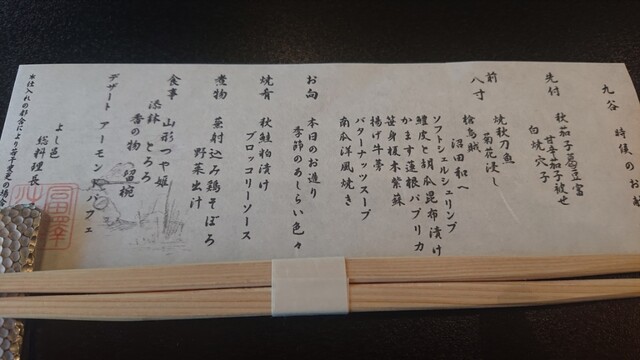 九谷　時候のお
先付　秋茄子葛豆富
甘辛茄子被せ
白焼穴子
前八寸　焼秋刀魚
菊花浸し
沼田和へ
ソフトシェルシュリンプ
鱧皮と胡瓜昆布漬け
かます蓮根パプリカ
笹身榎木紫蘇
揚げ牛蒡
バターナッツスープ
南瓜洋風焼き
お向　本日のお造り
季節のあしらい色々
焼肴　秋鮭粕漬け
ブロッコリーソース
煮物　蕪射込み鶏そぼろ
野菜出汁
食事　山形つや姫
添鉢　とろろ
香の物　留椀
デザート　アーモンドパフェ
よし邑
総料理長
※仕入れの都合により若干変更の場合